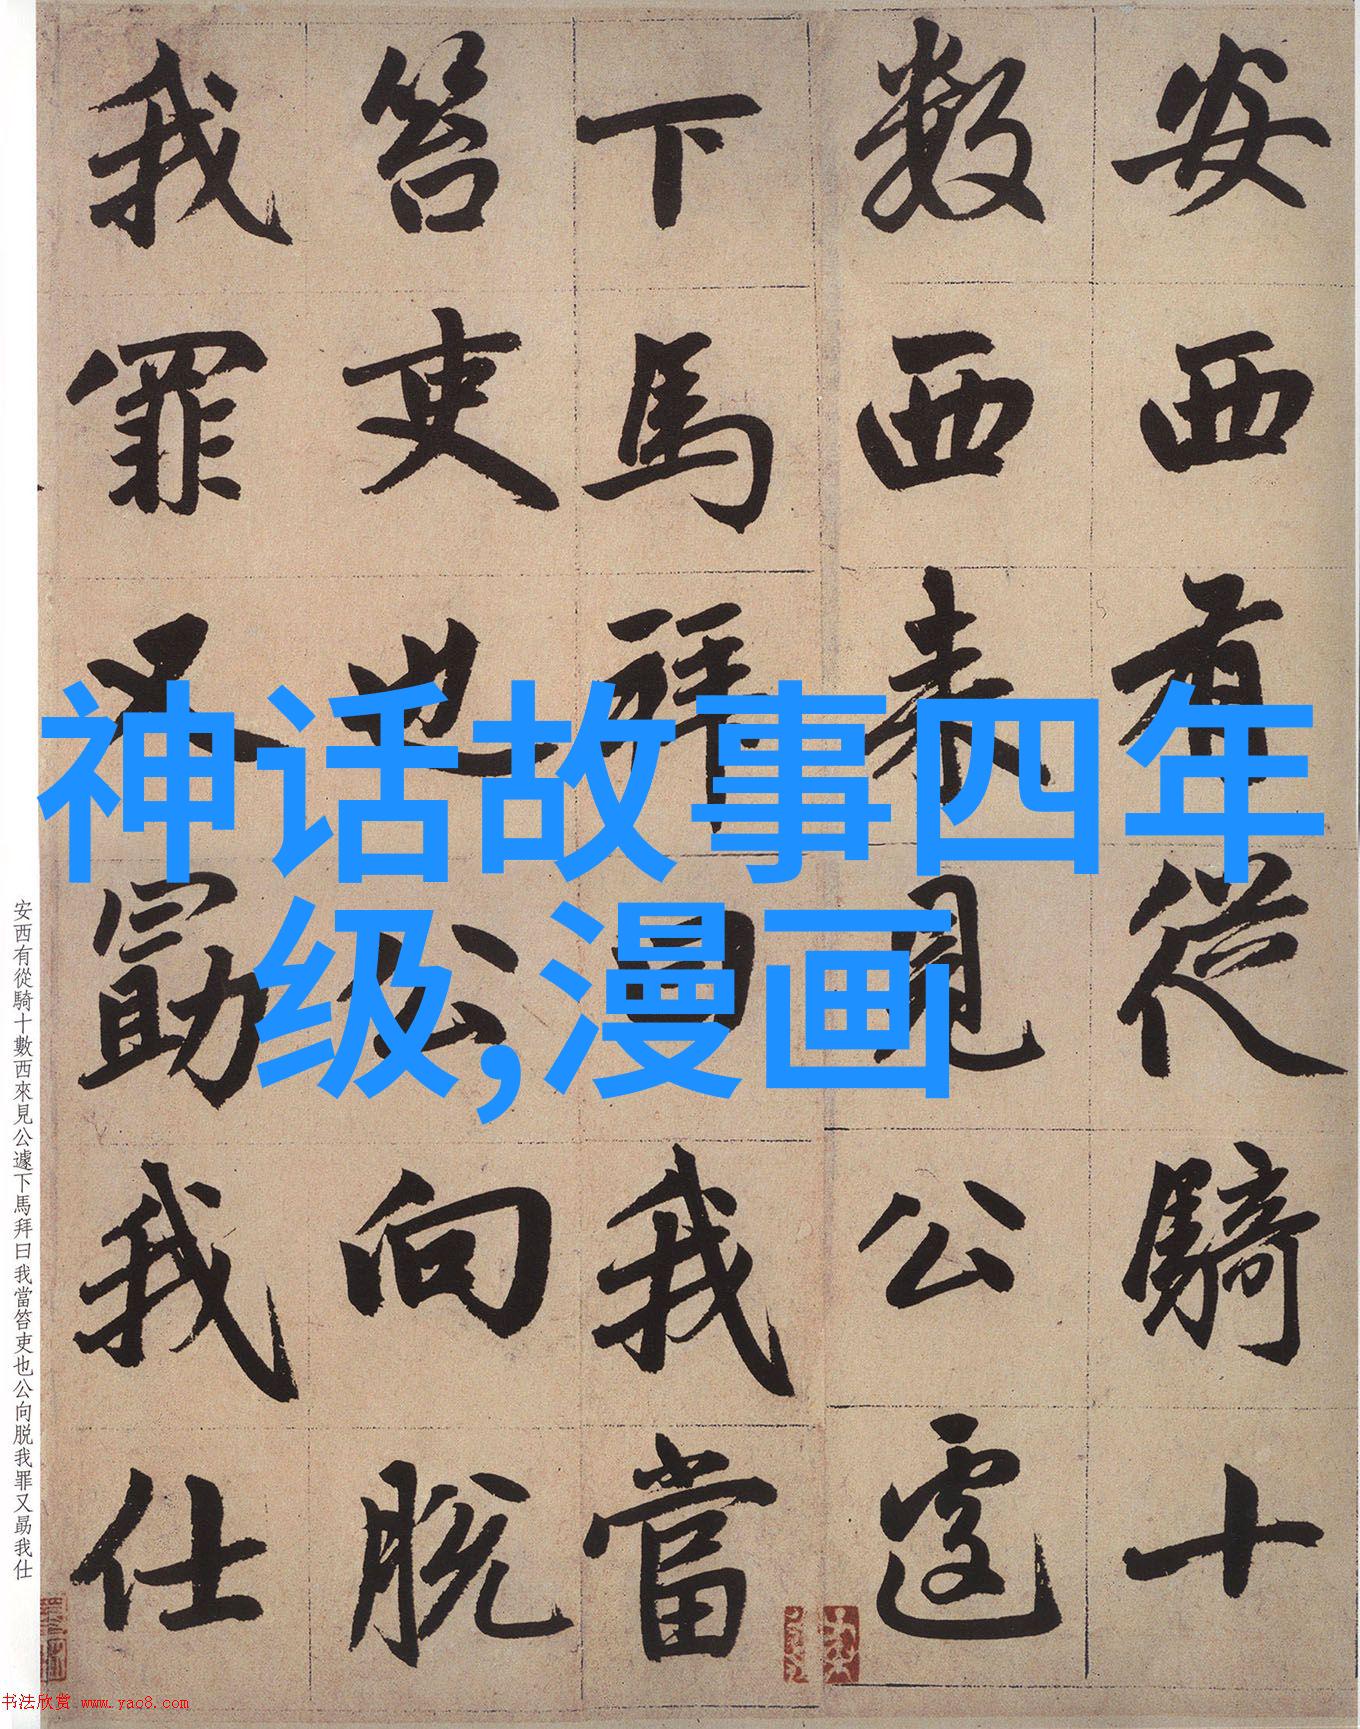 安西有從騎十
數西来見公遽
下馬拜曰我當
笞吏也公向脱
我罪又勗我仕
神话故事四年
级,漫画
安西有從騎十數西來見公遽下馬拜曰我當笞吏也公向脱我罪又勗我仕
书法欣赏 www.yac8.com